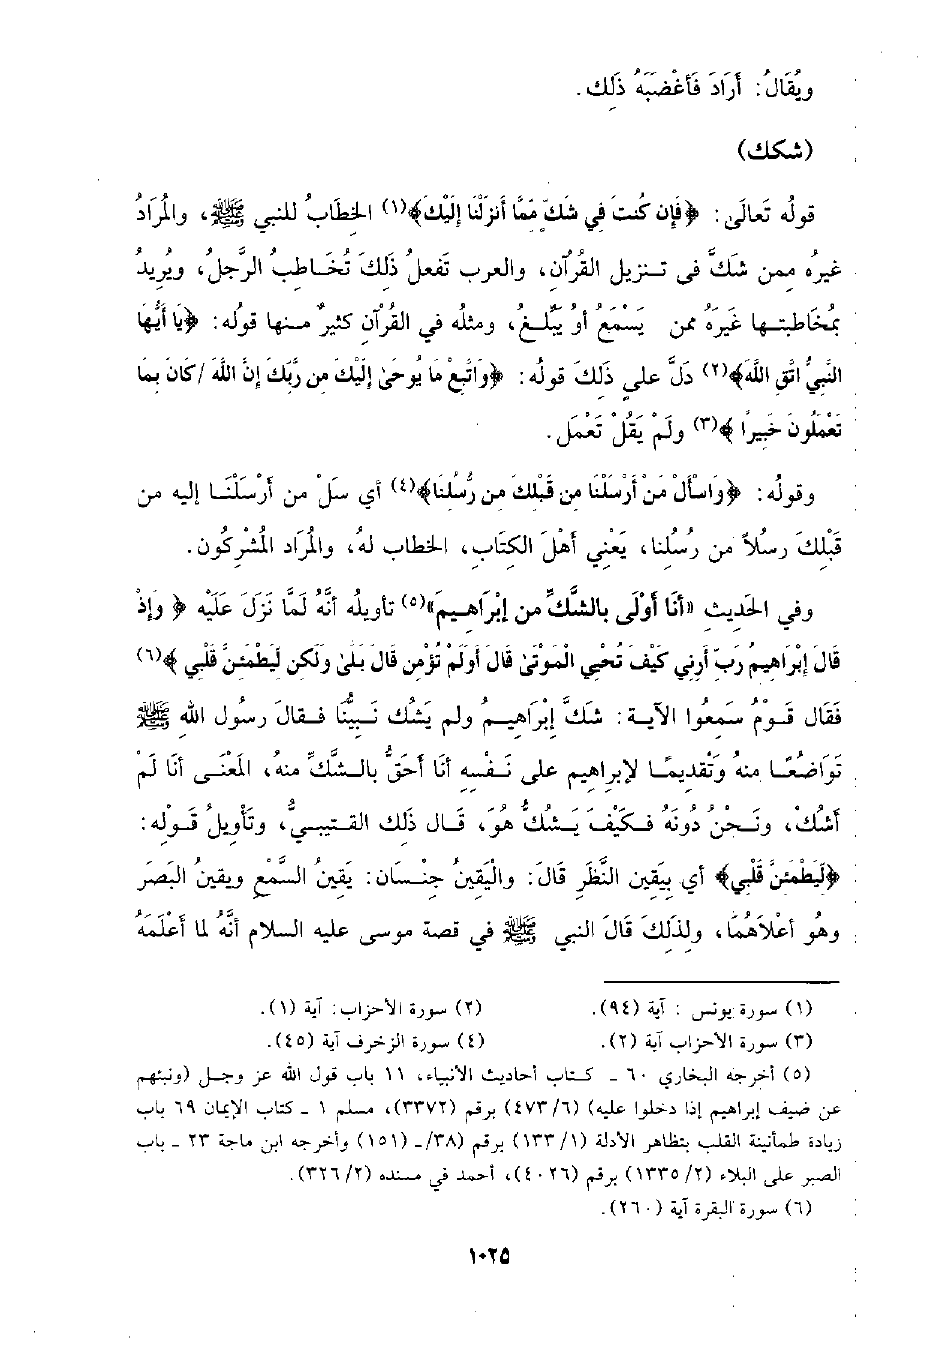 ويُقَالُ: أَرَادَ فَأَغْضَبَهُ ذَلِك.
(شكك)
قولُه تَعالَى: ﴿فَإِن كُنتَ في شَكٍّ مِّمَّا أَنزَلْنَا إِلَيْكَ﴾(١) الخطابُ للنبي ﷺ، والمُرَادُ
غيرُه ممن شكَّ فى تنزيل القُرآن، والعرب تَفعلُ ذَلكَ تُخَاطبُ الرَّجلُ، ويريدُ
بمُخَاطبتها غَيرَهُ ممن يَسْمَعُ أو يُبَّلغ، ومثلُه في القُرآن كثيرٌ منها قولُه: ﴿يَا أَيُّهَا
النَّبِيُّ اتَّقِ اللَّهَ﴾(٢) دَلَّ على ذَلكَ قولُه: ﴿وَاتَّبِعْ مَا يُوحَىٰ إِلَيْكَ مِن رَّبِّكَ إِنَّ اللَّهَ /كَانَ بِمَا
تَعْمَلُونَ خَبِيرًا ﴾(٣) ولَمْ يَقُلْ تَعْمَل.
وقولُه: ﴿وَاسْأَلْ مَنْ أَرْسَلْنَا مِن قَبْلِكَ مِن رُّسُلِنَا﴾(٤) أي سَلْ من أَرْسَلْنَا إليه من
قَبْلكَ رسُلاً من رُسُلنا، يَعْنِي أهْلَ الكتاب، الخطاب لهُ، والمُرَاد المُشْركُون.
وفي الحَديث «أنَا أَوْلَى بالشَّكِّ من إبْرَاهيمَ»(٥) تأويلُه أنَّهُ لَمَّا نَزَلَ عَلَيْه ﴿ وَإِذْ
قَالَ إِبْرَاهِيمُ رَبِّ أَرِنِي كَيْفَ تُحْيِي الْمَوْتَىٰ قَالَ أَوَلَمْ تُؤْمِن قَالَ بَلَىٰ وَلَكِن لِيَطْمَئِنَّ قَلْبِي ﴾(٦)
فَقَال قَوْمٌ سَمعُوا الآية: شكَّ إبْرَاهيمُ ولم يَشُك نَبيُّنَا فقالَ رسُول الله ﷺ
تَوَاضُعًا منهُ وتَقْديمًا لإبراهيم على نَفْسه أنَا أحَقُّ بالشَّكِّ منهُ، المَعْنَى أنَا لَم
أشُكْ، ونَحْنُ دُونَهُ فكَيْفَ يَشُكُّ هُوَ، قَال ذَلك القتيبيُّ، وتَأويلُ قَوله:
﴿لِيَطْمَئِنَّ قَلْبِي﴾ أي بيَقين النَّظَر قَالَ: والْيَقينُ جنْسَان: يَقينُ السَّمْع ويقينُ البَصَر
وهُو أعْلاَهُمَا، ولذَلكَ قَالَ النبي ﷺ في قصة موسى عليه السلام أنَّهُ لما أعْلَمَهُ
(١) سورة يونس : آية (٩٤).
(٢) سورة الأحزاب: آية (١).
(٣) سورة الأحزاب آية (٢).
(٤) سورة الزخرف آية (٤٥).
(٥) أخرجه البخاري ٦٠ - كتاب أحاديث الأنبياء، ١١ باب قول الله عز وجل (ونبئهم
عن ضيف إبراهيم إذا دخلوا عليه) (٤٧٣/٦) برقم (٣٣٧٢)، مسلم ١ - كتاب الإيمان ٦٩ باب
زيادة طمأنينة القلب بتظاهر الأدلة (١٣٣/١) برقم (٣٨/- (١٥١) وأخرجه ابن ماجة ٢٣ - باب
الصبر على البلاء (١٣٣٥/٢) برقم (٤٠٢٦)، أحمد في مسنده (٣٢٦/٢).
(٦) سورة البقرة آية (٢٦٠).
١٠٢٥